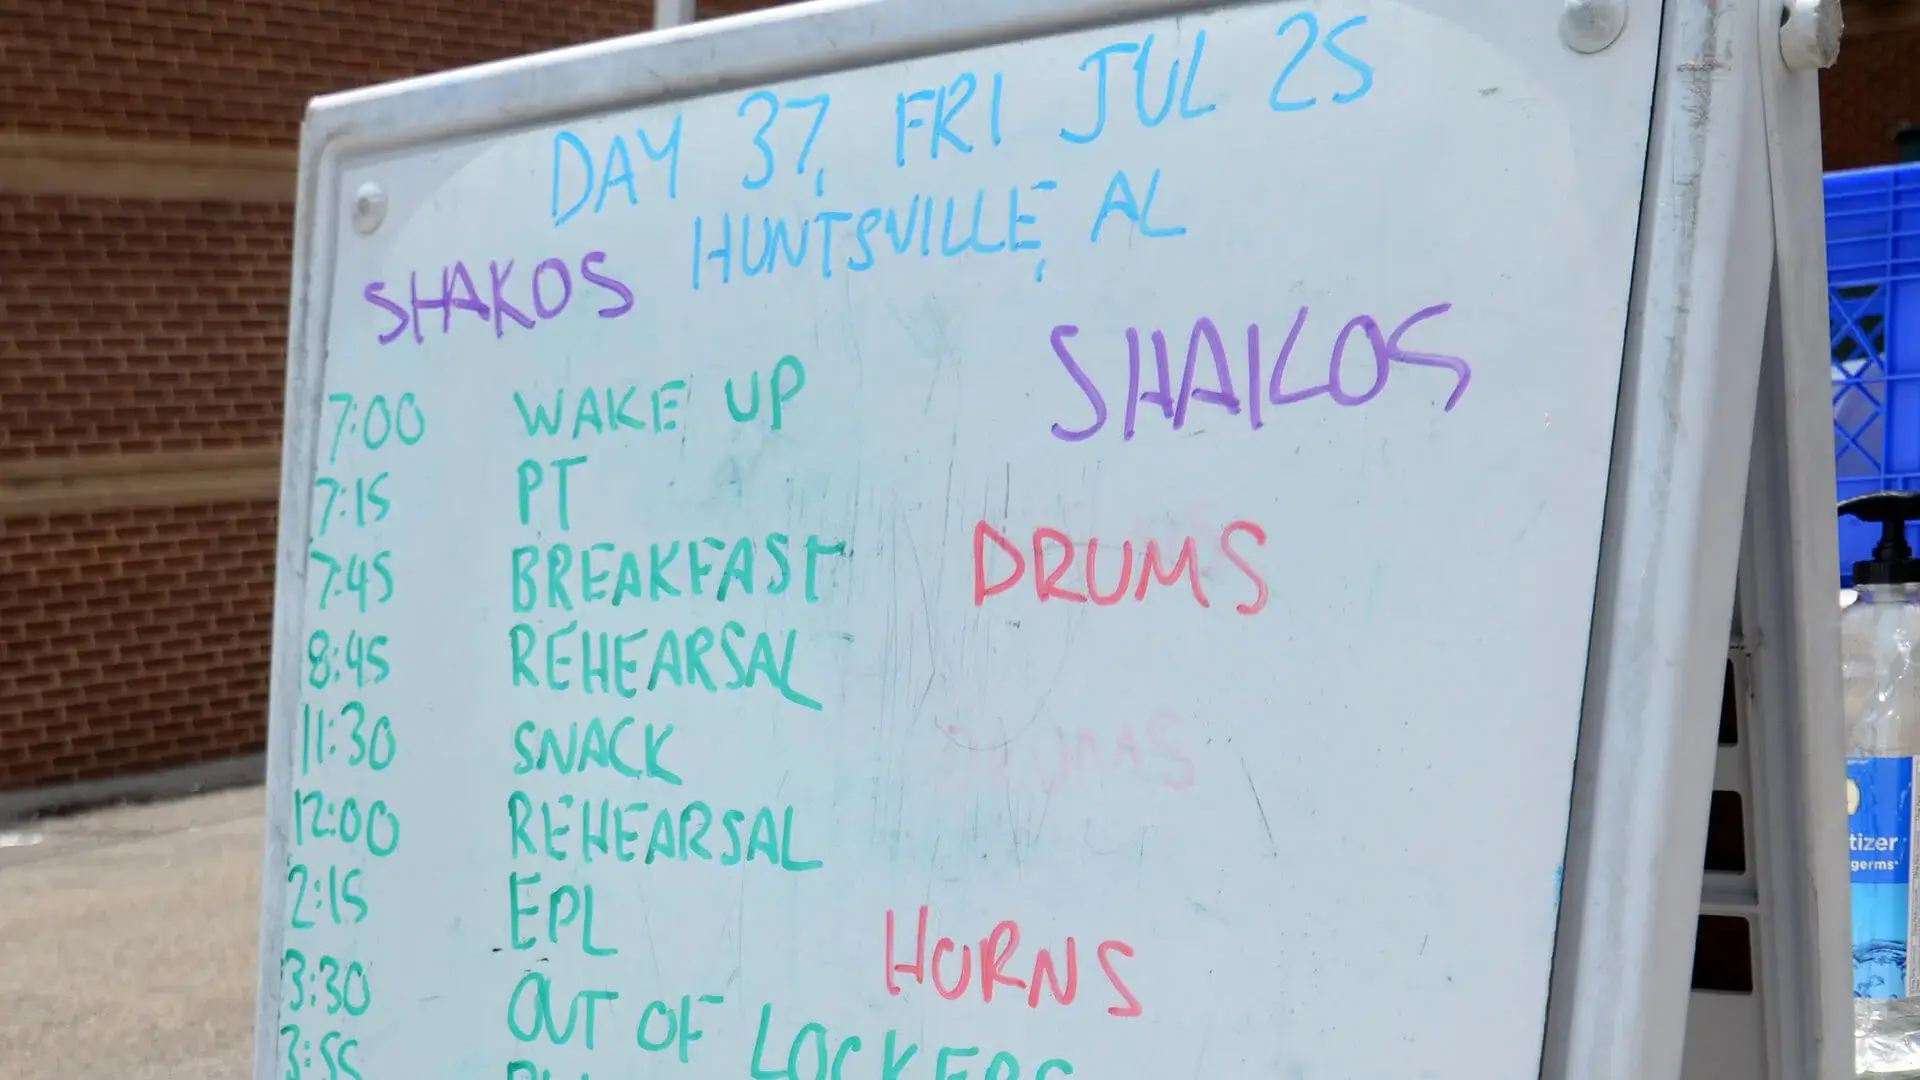 DAY 37, FRI JUL 25
HUNTSVILLE, AL
SHAKOS
SHAKOS
7:00 WAKE UP
7:15 PT
7:45 BREAKFAST DRUMS
8:45 REHEARSAL
11:30 SNACK DRUMS
12:00 REHEARSAL
2:15 EPL HORNS
3:30 OUT OF LOCKERS
3:55
tizer
germs